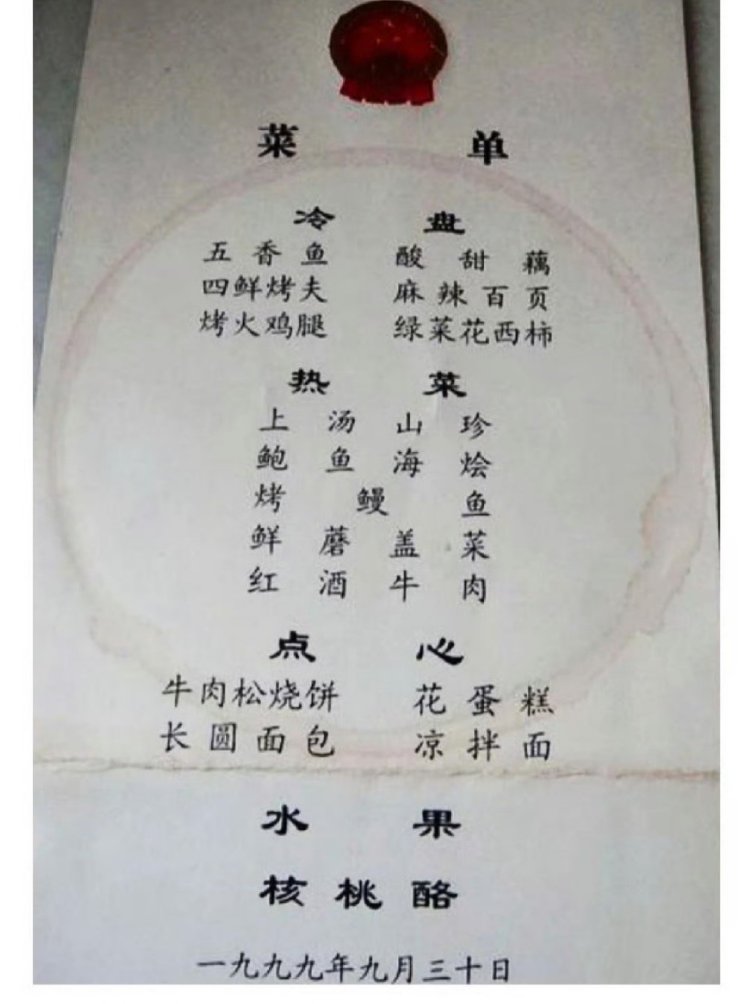 菜 单
冷 盘
五香鱼 酸甜藕
四鲜烤夫 麻辣百页
烤火鸡腿 绿菜花西柿
热 菜
上汤山珍
鲍鱼海烩
烤鳗鱼
鲜蘑盖菜
红酒牛肉
点 心
牛肉松烧饼 花蛋糕
长圆面包 凉拌面
水 果
核桃酪
一九九九年九月三十日